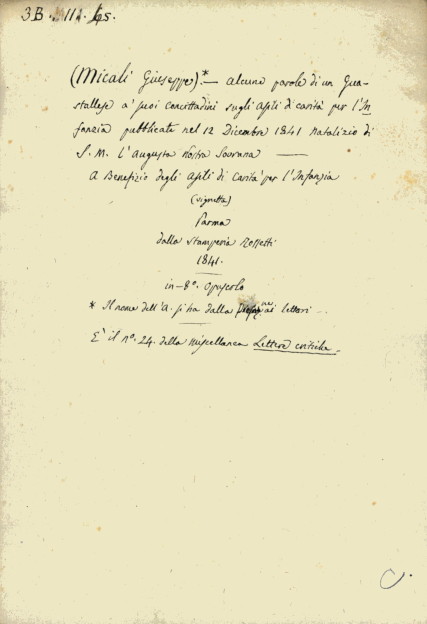 3B. 111. 65.
(Micali Giuseppe)*— alcune parole di un Gua-
stallese a' suoi concittadini sugli Asili di carità per l'In
fanzia pubblicate nel 12 Dicembre 1841 natalizio di
S. M. l'Augusta nostra Sovrana —
A Benefizio degli Asili di Carità per l'Infanzia
(vignetta)
Parma
dalla stamperia Rossetti
1841.
in-8°. opuscolo
* Il nome dell'A. si ha dalla ne ai lettori.
È il n°. 24. della miscellanea Lettere critiche.